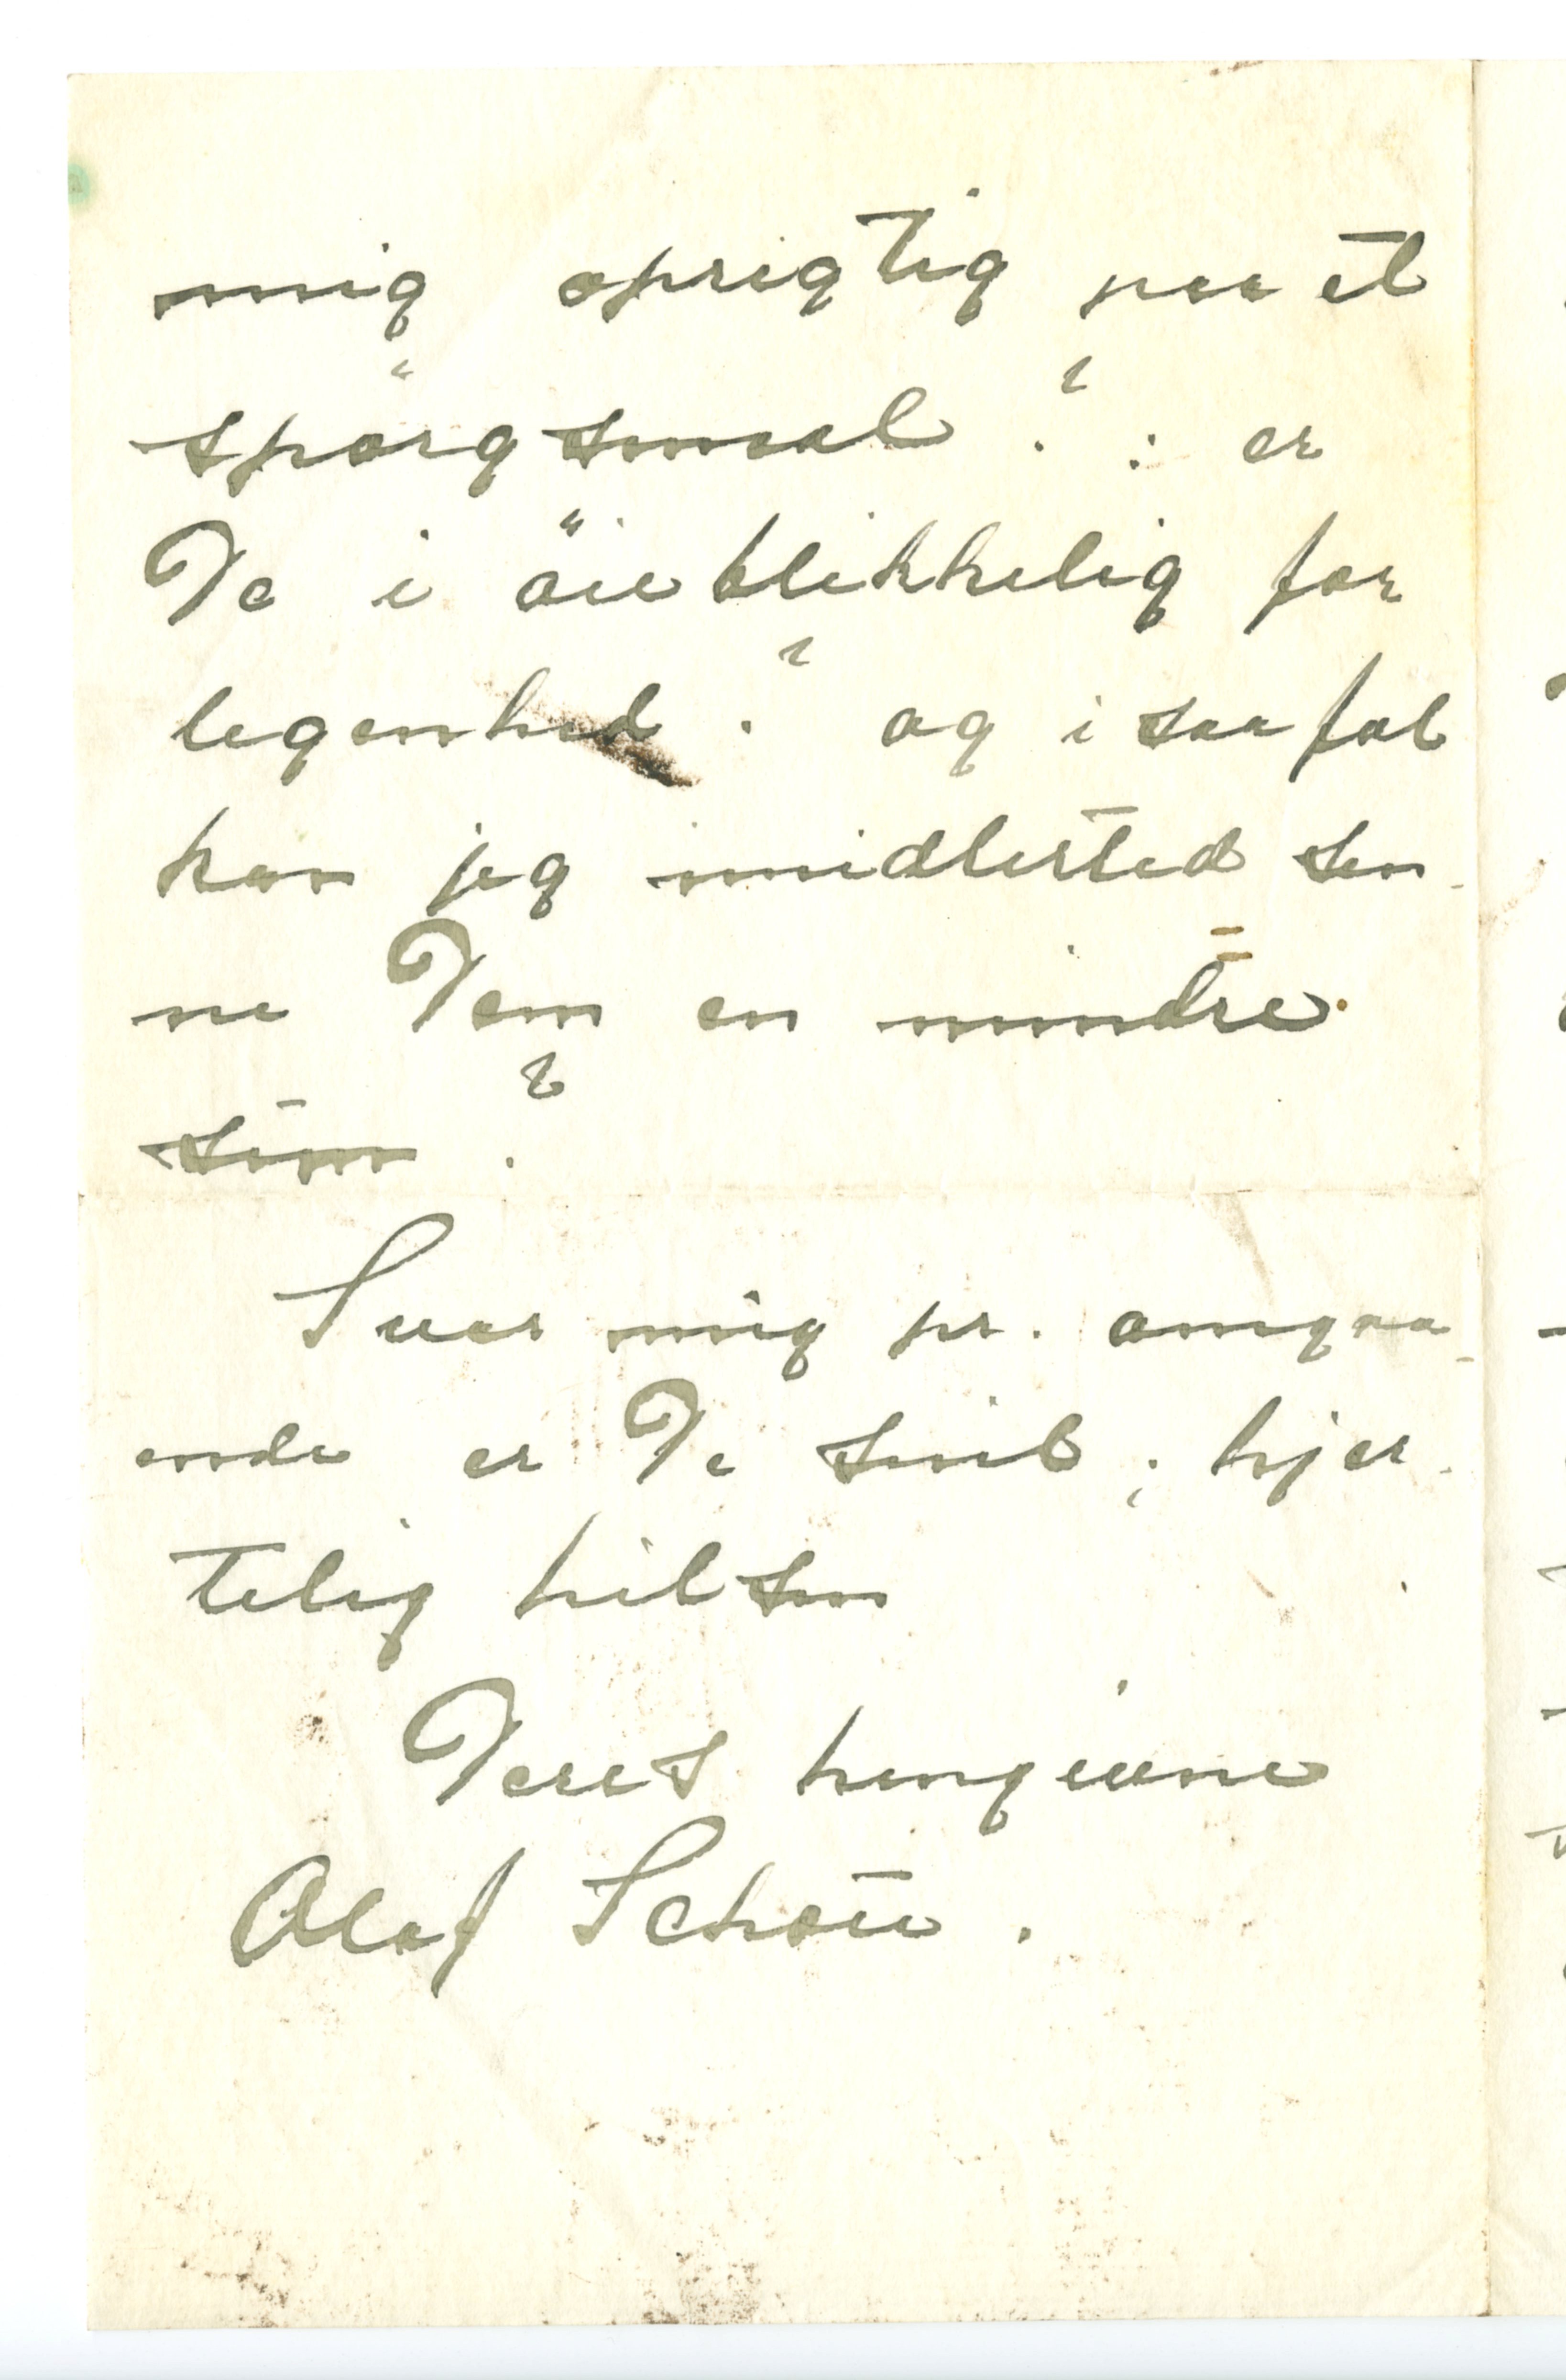 mig oprigtig paa et
spörgsmaal ? : er
De i öieblikkelig for
legenhed ? og i saa fal
kan jeg imidlertid sen-
ne Dem en mindre
süm ?
Svar mig pr. omgaa-
ende er De snil ; hjer-
telig hilsen
Deres hengivne
Olaf Schou .